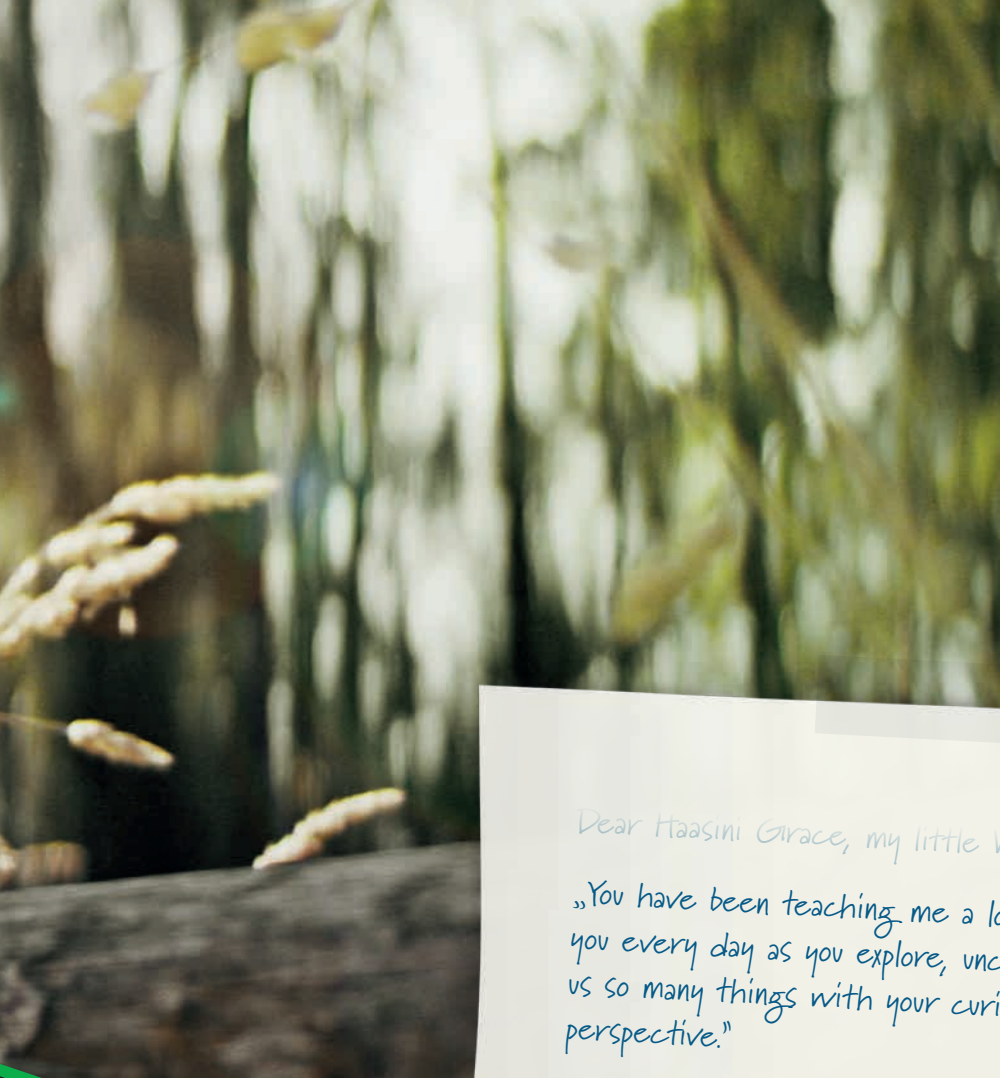 Dear Haasini Grace, my little
„You have been teaching me a
you every day as you explore,
us so many things with your
perspective.”